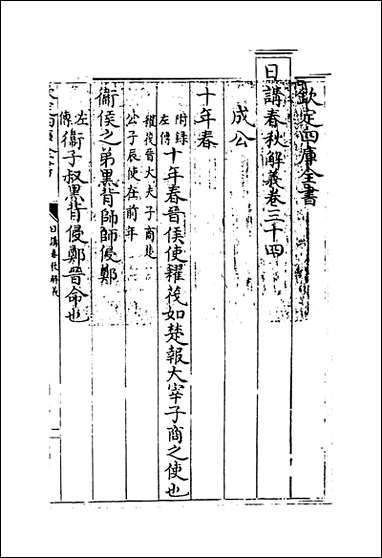 欽定四庫全書
日講春秋解義卷三十四
成公
十年春
附錄左傳十年春晉侯使糴茷如楚報大宰子商之使也
糴茷晉大夫子商楚公子辰使在前年
衛侯之弟黑背帥師侵鄭
左傳衛子叔黑背侵鄭晉命也
日講春秋解義